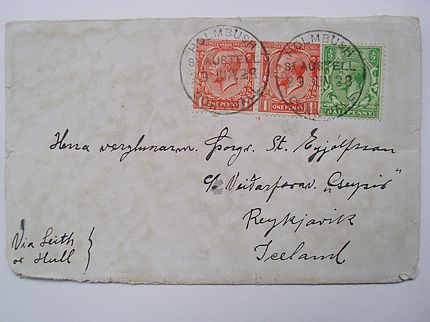 HOLMBUSH
ST AUSTELL
9 JN 23
HOLMBUSH
ST AUSTELL
9 JN 23
ONE PENNY
ONE PENNY
HALFPENNY
Herra verzlunarm. Þorgr. St. Eyjólfsson
c/o Veiðarfærav. „Geysir"
Reykjavik
Iceland
Via Leith
or Hull